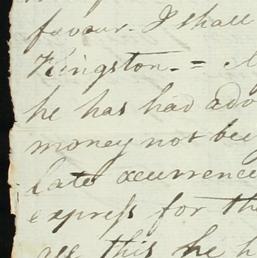 favour. I shall
Kingston. =
he has had adv
money not bee
late occurrence
expreſs for th
all this he h